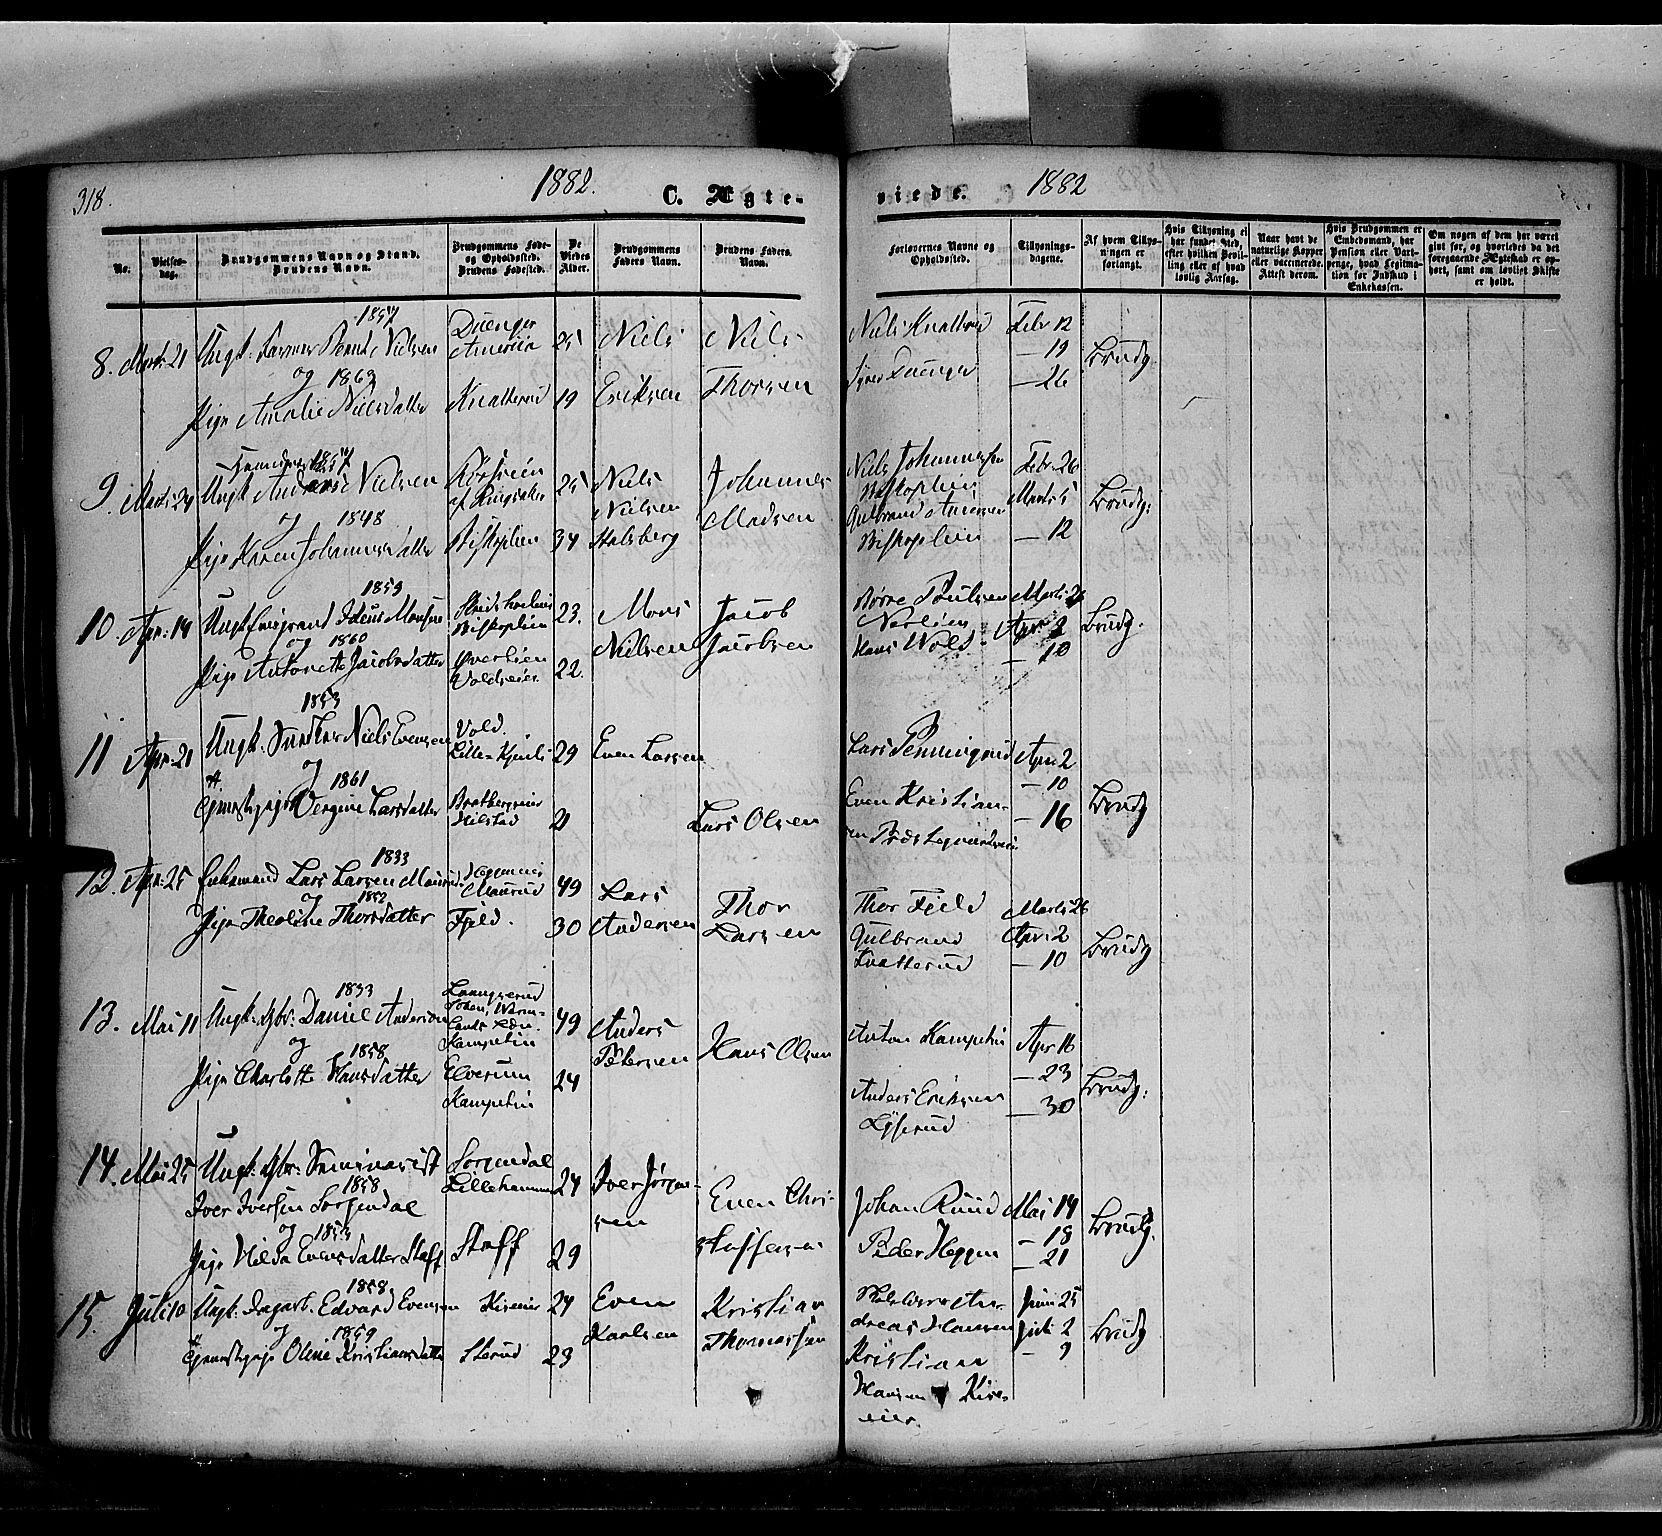 318.
1882.
C. Ægte-
viede.
1882
No.
Vielses-
dag.
Brudgommens Navn og Stand.
Brudens Navn.
Brudgommens Føde-
og Opholdssted.
Brudens Fødested.
De
Viedes
Alder.
Brudgommens
Faders Navn.
Brudens Faders
Navn.
Forlovernes Navne og
Opholdssted.
Tillysnings-
dagene.
Af hvem Tillys-
ningen er
forlangt.
Hvis Tillysning ei
har fundet Sted,
efter hvilken Bevil-
ling eller af hvad
lovlig Aarsag.
Naar havt de
naturlige Kopper
eller vaccinerede.
Attest derom.
Hvis Brudgommen er
Embedsmand, har
Pension eller Vart-
penge, hvad Legitima-
tion for Indskud i
Enkekassen.
Om nogen af dem har været
gift før, og hvorledes da det
foregaaende Ægteskab er op-
hørt, samt om lovligt Skifte
er holdt.
8. Marts 21
1857
Ungk. Farmer Bernt Nielsen
og 1863
Pige Amalie Nielsdatter
Duenger
Amerika
Knatterud
25
19
Niels
Eriksen
Niels
Thorsen
Niels Knatterud
Duenger
Febr 12
— 19
— 26
Brudg.
9. Marts 24
1857
Ungk Anders Nielsen
og 1848
Pige Karen Johannesdatter
af Ringsaker
Biskoplien
25
34
Niels
Nielsen
Stalsberg
Johannes
Madsen
Niels Johannessen
Biskoplien
Gulbrand Andersen
Biskoplien
Febr. 26
Marts 5
— 12
Brudg:
10. Apr: 14
1859
Ungk Emigrant Ideus Monsen
og 1860
Pige Antonette Jacobsdatter
Biskoplien
Øverlien
Voldseier
23.
22.
Mons
Nielsen
Jacob
Jacobsen
Børre Poulsen
Nerlien
Hans Vold
Marts 26
Apr 2
— 10
Brudg.
11 Apr: 21
1853
Ungk: Snedker Niels Evensen
og
1861
Tjenestepige Vergine Larsdatter
Vold.
Lille-Kjørli
Bratbergseier
Hilstad
29
21
Even Larsen
Lars Olsen
Lars Penningrud
Even Kristian-
sen
Apr. 2
— 10
— 16
Brudg
12. Apr: 25
1833
Enkemand Lars Larsen Maurud
og 1852
Pige Theoline Thorsdatter
Maurud
Fjeld.
49
30
Lars
Andersen
Thor
Larsen
Thor Fjeld
Gulbrand
Knatterud
Marts 26
Apr. 2
— 10
Brudg
13. Mai 11
1833
Ungk: Gbr: Daniel Anderson
og
1858
Pige Charlotte Hansdatter
Langserud
Soken, Værm-
lands Læn.
Kampelin
Elverum
Kampelin
49
24
Anders
Petersen
Hans Olsen
Anton Kampelin
Anders Eriksen
Lyserud
Apr 16
— 23
— 30
Brudg:
14. Mai 25
Ungk: Gbr: Seminarist
1858
Iver Iversen Sorgendal
og 1853
Pige Hilda Evensdatter Staff
Sorgendal
Lillehammer
Staff
24
29
Iver Jørgen-
sen
Even Chri-
stoffersen
Johan Ruud
Peder Heggen
Mai 14
— 18
— 21
Brudg.
15. Juli 10
1858
Ungk: Dagarb. Edvard Evensen
og 1859
Tjenestepige Oline Kristiansdatter
Kiseeier
Sterud
24
23
Even
Karlsen
Kristian
Thomassen
An-
dreas Hansen
Kristian
Hansen Kise-
eier.
Juni 25
Juli 2
— 9
Brudg